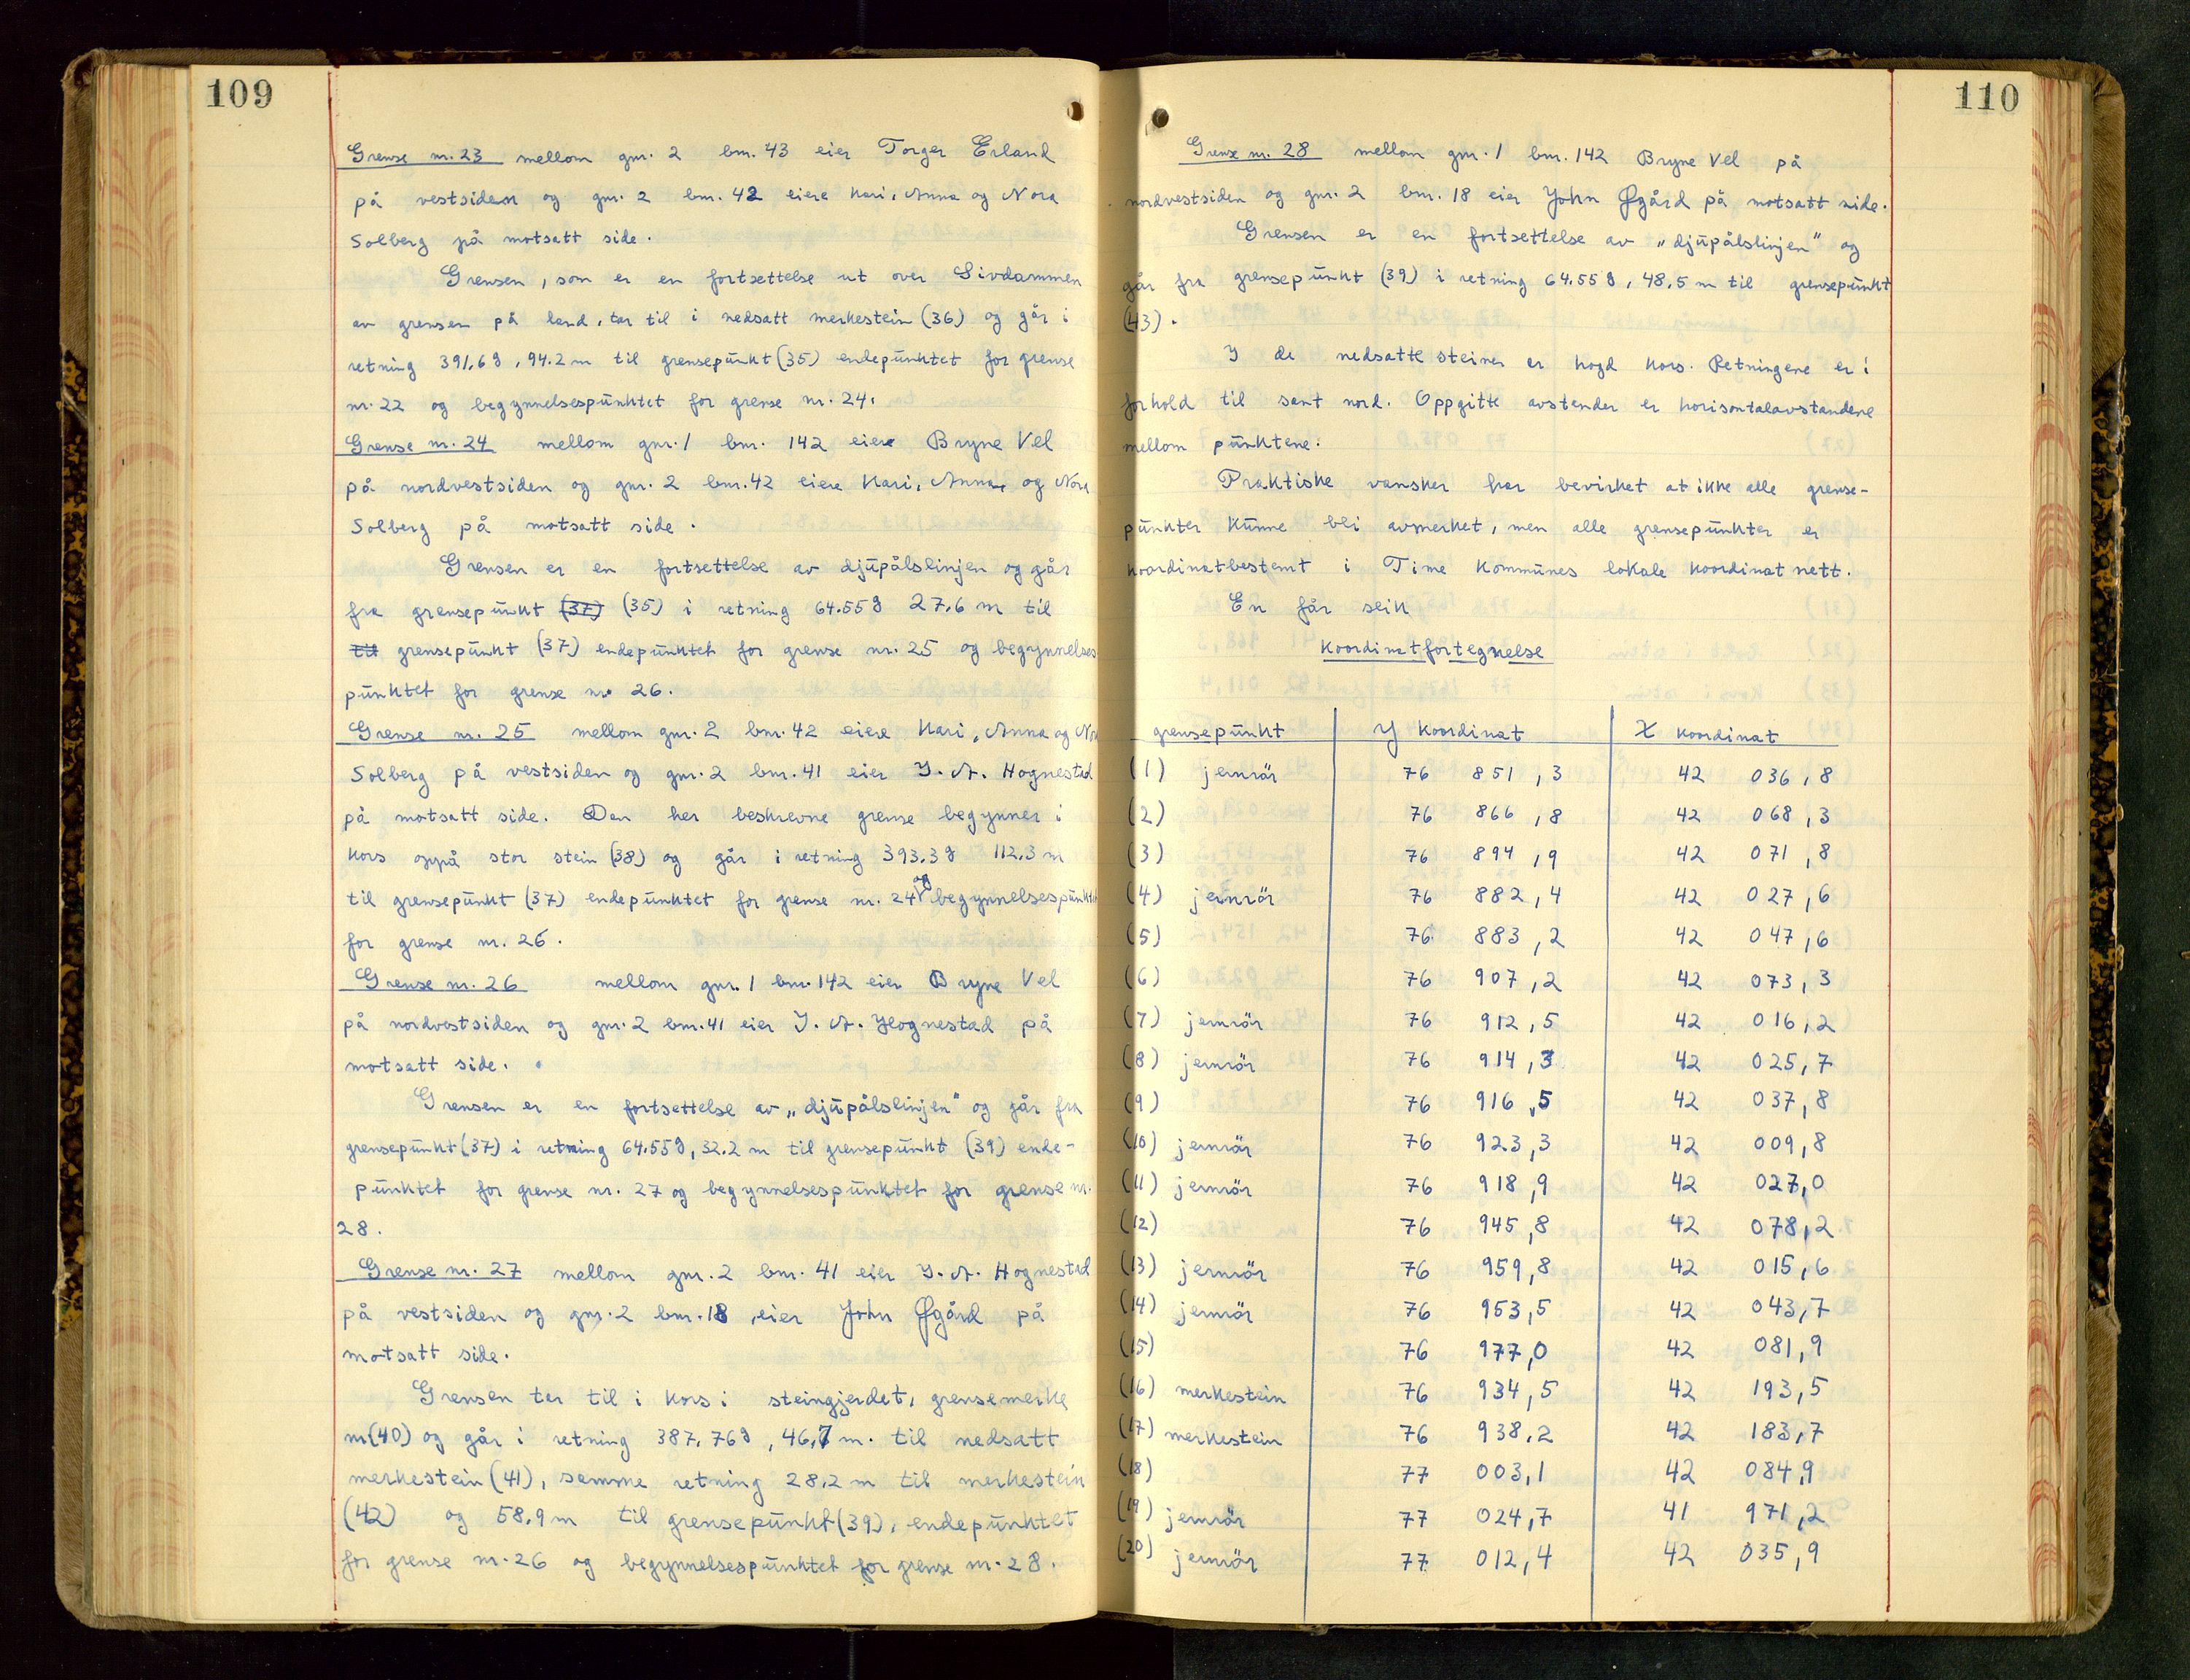 109
Grense nr. 23 mellom gnr. 2 bnr. 43 eier Torger Erland
på vestsiden og gnr. 2 bnr. 42 eiere Kari, Anna og Nora
Solberg på motsatt side.
Grensen, som er en fortsettelse ut over Sivdammen
av grensen på land, tar til i nedsatt merkestein (36) og går i
retning 391,6g, 94.2 m til grensepunkt (35) endepunktet for grense
nr. 22 og begynnelsespunktet for grense nr. 24.
Grense nr. 24 mellom gnr. 1 bnr. 142 eiere Bryne Vel
på nordvestsiden og gnr. 2 bnr. 42 eiere Kari, Anna, og Nora
Solberg på motsatt side.
Grensen er en fortsettelse av djupålslinjen og går
fra grensepunkt (37) (35) i retning 64.55g 27,6 m til
til grensepunkt (37) endepunktet for grense nr. 25 og begynnelses
punktet for grense nr. 26.
Grense nr. 25 mellom gnr. 2 bnr. 42 eiere Kari, Anna og Nora
Solberg på vestsiden og gnr. 2 bnr. 41 eier J. A. Hognestad
på motsatt side. Den her beskrevne grense begynner i
kors oppå stor stein (38) og går i retning 393.3g 112.3 m
til grensepunkt (37) endepunktet for grense nr. 24 og begynnelsespunktet
for grense nr. 26.
Grense nr. 26 mellom gnr. 1 bnr. 142 eier Bryne Vel
på nordvestsiden og gnr. 2 bnr. 41 eier J. A. Hognestad på
motsatt side.
Grensen er en fortsettelse av „djupålslinjen" og går fra
grensepunkt (37) i retning 64.55g, 32.2 m til grensepunkt (39) ende-
punktet for grense nr. 27 og begynnelsespunktet for grense nr.
28.
Grense nr. 27 mellom gnr. 2 bnr. 41 eier J. A. Hognestad
på vestsiden og gnr. 2 bnr. 18, eier John Øgård på
motsatt side.
Grensen tar til i kors i steingjerdet, grensemerke
nr (40) og går i retning 387,76g, 46,7 m. til nedsatt
merkestein (41), samme retning 28,2 m til merkestein
(42) og 58,9 m til grensepunkt (39), endepunktet
for grense nr. 26 og begynnelsespunktet for grense nr. 28.
110
Grense nr. 28 mellom gnr. 1 bnr. 142 Bryne Vel på
nordvestsiden og gnr. 2 bnr. 18 eier John Øgård på motsatt side.
Grensen er en fortsettelse av „djupålslinjen" og
går fra grensepunkt (39) i retning 64.55g, 48,5 m til grensepunkt
(43).
I de nedsatte steiner er hogd kors. Retningene er i
forhold til sant nord. Oppgitte avstander er horisontalavstandene
mellom punktene.
Praktiske vansker har bevirket at ikke alle grense-
punkter kunne bli avmerket, men alle grensepunkter er
koordinatbestemt i Time kommunes lokale koordinatnett.
En får slik
Koordinatfortegnelse
grensepunkt Y koordinat X koordinat
(1) jernrör 76 851,3 42 036,8
(2) 76 866,8 42 068,3
(3) 76 894,9 42 071,8
(4) jernrör 76 882,4 42 027,6
(5) 76 883,2 42 047,6
(6) 76 907,2 42 073,3
(7) jernrör 76 912,5 42 016,2
(8) jernrör 76 914,3 42 025,7
(9) 76 916,5 42 037,8
(10) jernrör 76 923,3 42 009,8
(11) jernrör 76 918,9 42 027,0
(12) 76 945,8 42 078,2
(13) jernrör 76 959,8 42 015,6
(14) jernrör 76 953,5 42 043,7
(15) 76 977,0 42 081,9
(16) merkestein 76 934,5 42 193,5
(17) merkestein 76 938,2 42 183,7
(18) 77 003,1 42 084,9
(19) jernrör 77 024,7 41 971,2
(20) jernrör 77 012,4 42 035,9